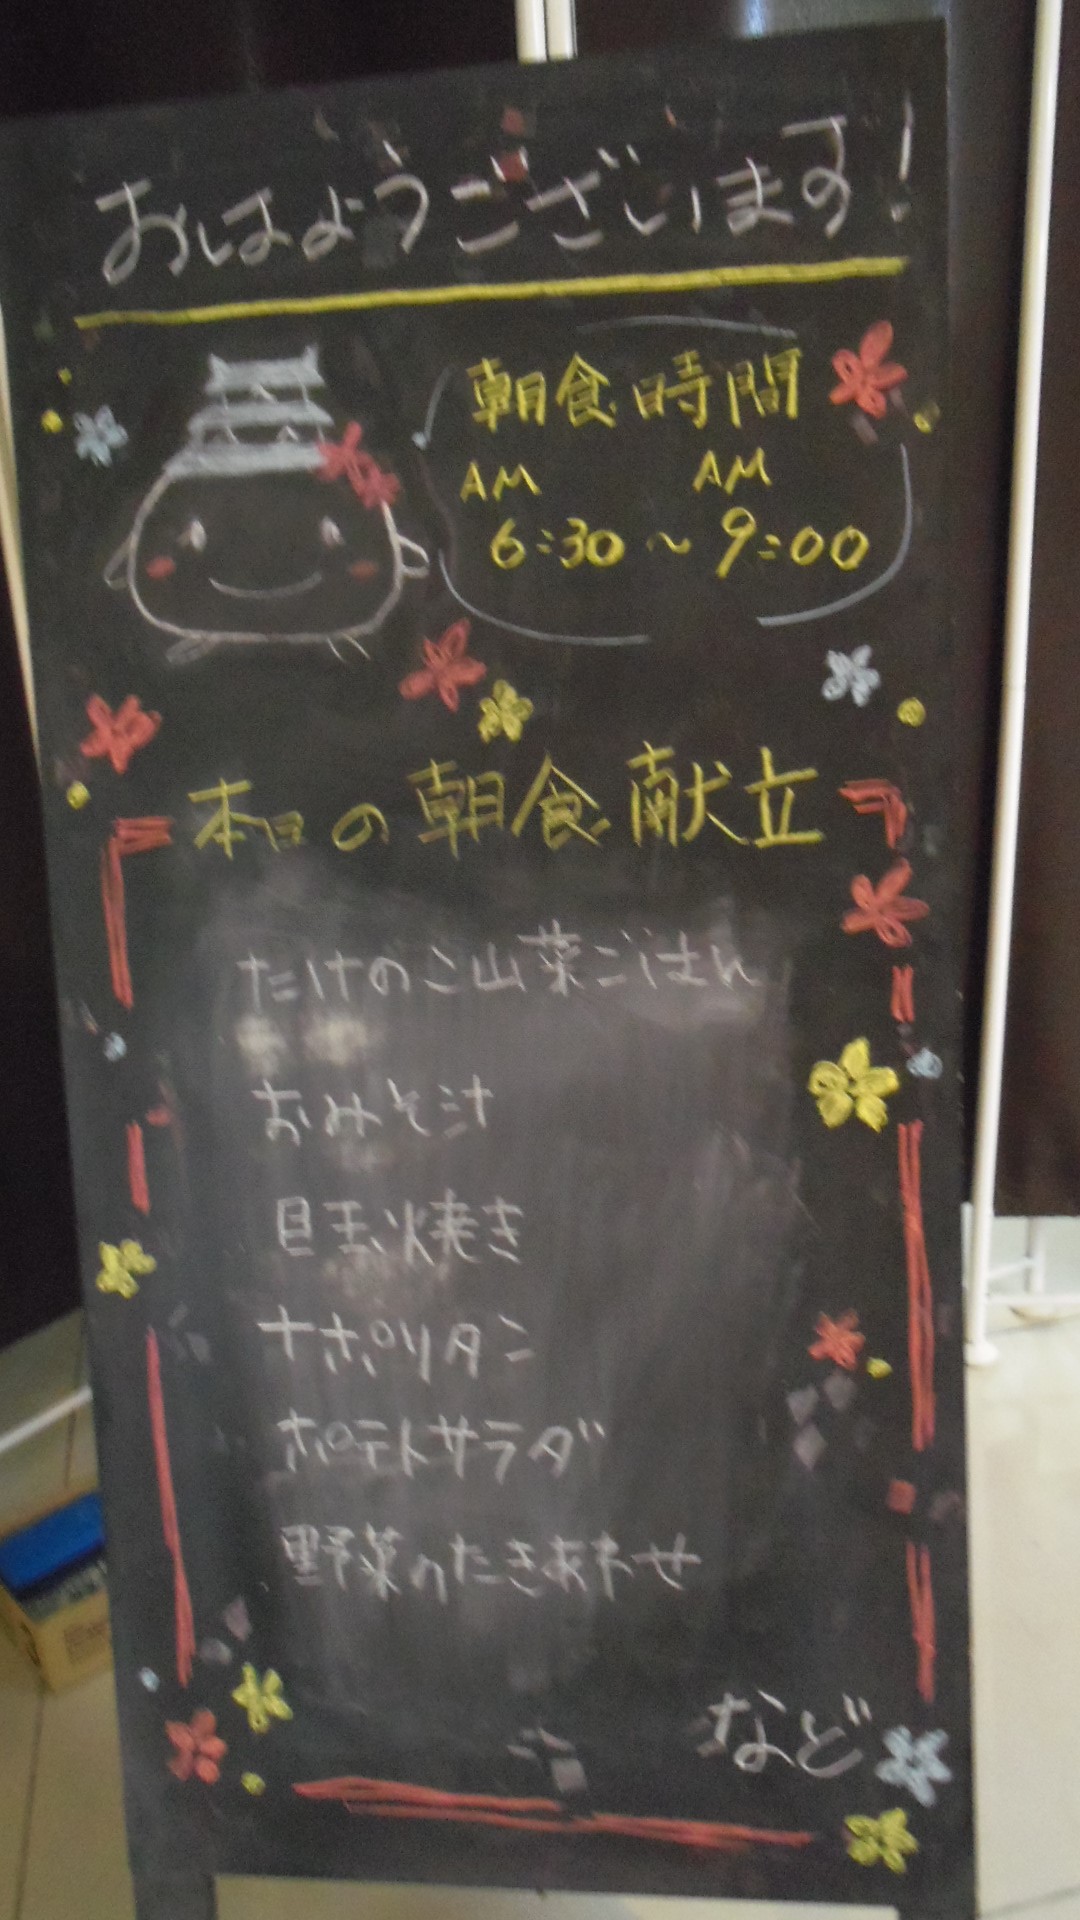 おはようございます!
朝食時間
AM AM
6:30～9:00
本日の朝食献立
たけのこ山菜ごはん
おみそ汁
目玉焼き
ナポリタン
ポテトサラダ
野菜のたきあわせ
など